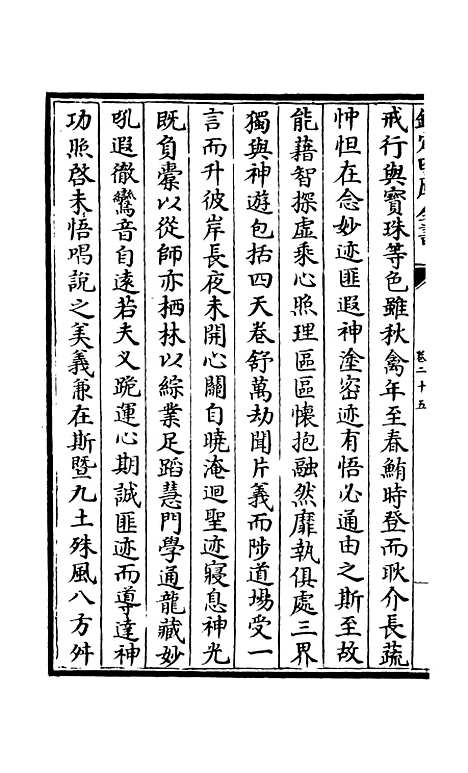 欽定四庫全書
卷二十五
戒行與寳珠等色雖秋禽年至春鮪時登而耿介長蔬
忡怛在念妙迹匪遐神塗密迹有悟必通由之斯至故
能藉智探虛乘心照理區區懷抱融然靡執俱處三界
獨與神遊包括四天卷舒萬劫聞片義而陟道場受一
言而升彼岸長夜未開心關自曉淹迴聖迹寢息神光
既負橐以從師亦栖林以綜業足蹈慧門學通龍藏妙
吼遐徹鸞音自遠若夫义跪運心期誠匪迹而導達神
功照啓未悟唱說之美義兼在斯暨九土殊風八方舛